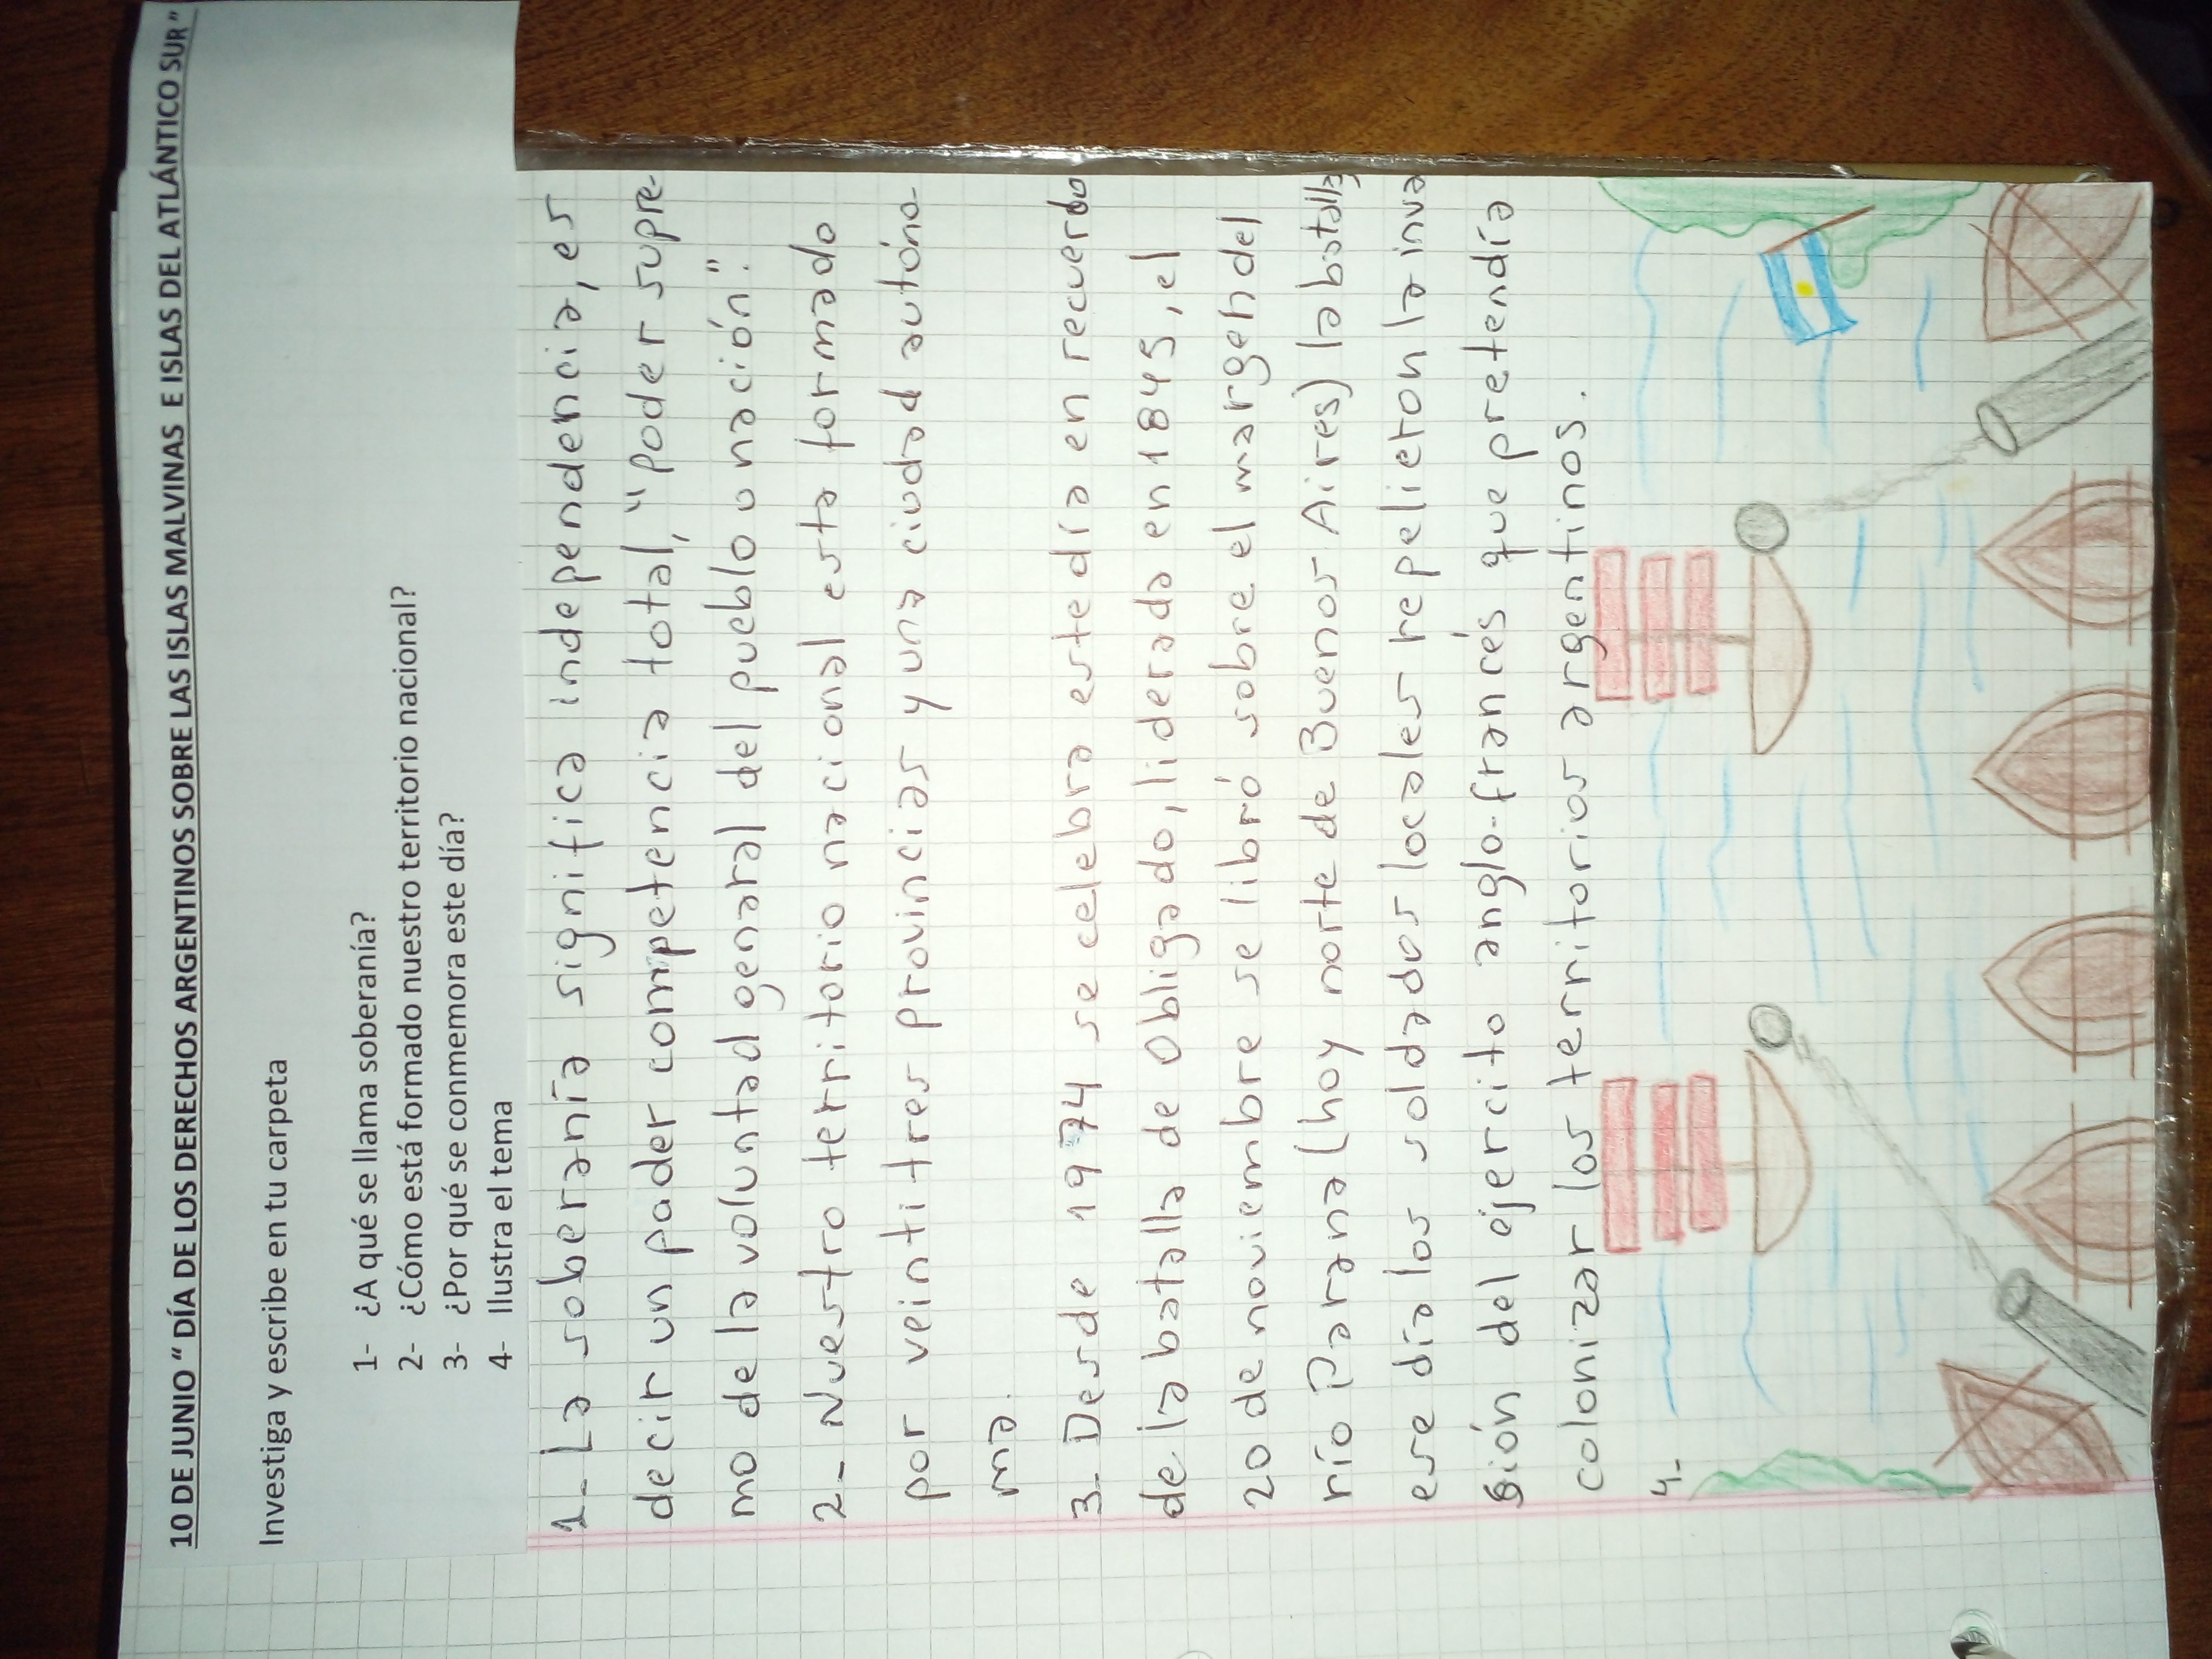 10 DE JUNIO " DÍA DE LOS DERECHOS ARGENTINOS SOBRE LAS ISLAS MALVINAS E ISLAS DEL ATLÁNTICO SUR"
Investiga y escribe en tu carpeta
1- ¿A qué se llama soberanía?
2- ¿Cómo está formado nuestro territorio nacional?
3- ¿Por qué se conmemora este día?
4- Ilustra el tema
1- La soberanía significa independencia, es
decir un pader competencia total, "poder supre-
mo de la voluntad genaral del pueblo o nación".
2- Nuestro territorio nacional esta formado
por veintitres provincias y una ciudad autóno-
ma.
3- Desde 1974 se celebra este día en recuerdo
de la batalla de Obligado, liderada en 1845, el
20 de noviembre se libró sobre el margen del
río Parana (hoy norte de Buenos Aires) la batalla
ese día los soldados locales repelieron la inva
sión del ejercito anglo-francés que pretendía
colonizar los territorios argentinos.
4-